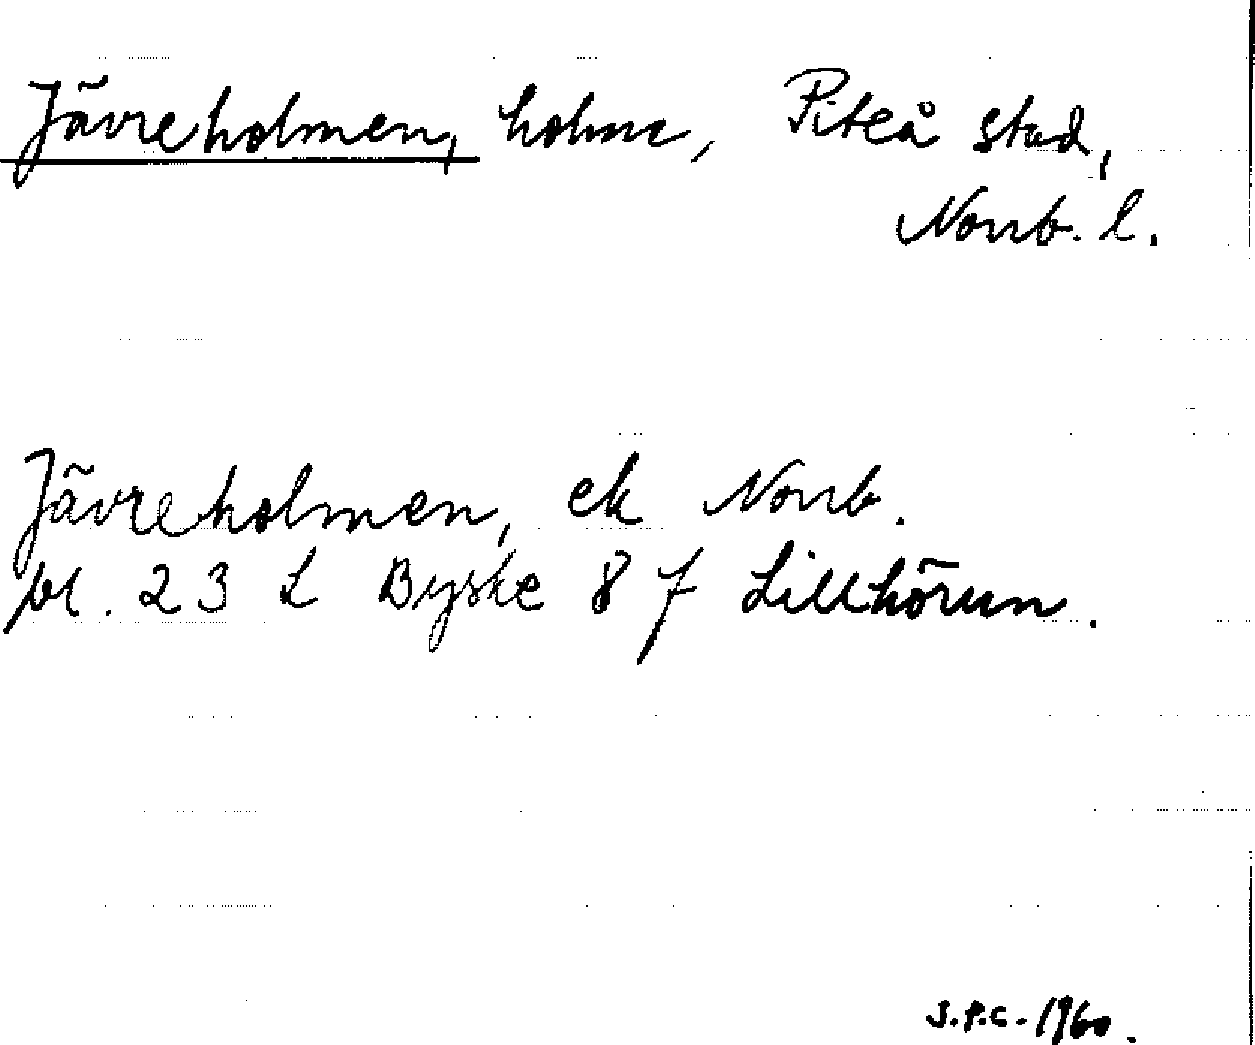 Jävreholmen, holme, Piteå stad,
Norrb. l.
Jävreholmen, ek Norrb.
bl. 23 L Byske 8 f Lillhörun.
J.P.C. 1960.